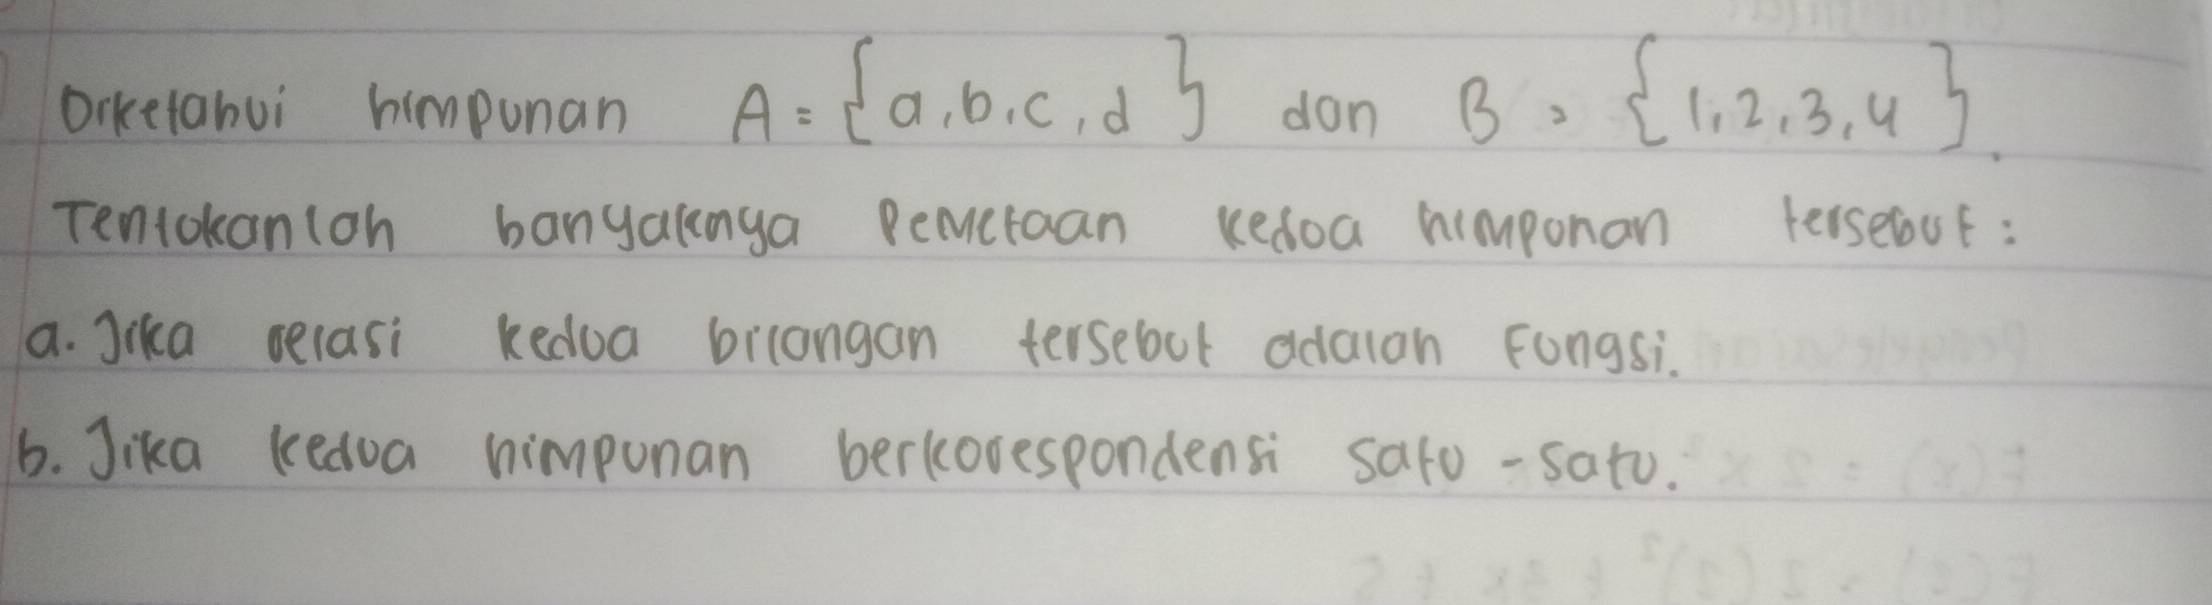 Diketahui himpunan A = {a, b, c, d} dan B = {1, 2, 3, 4}.
Tentukanlah banyaknya Pemetaan kedua himpunan tersebut :
a. Jika relasi kedua bilangan tersebut adalah Fungsi.
b. Jika kedua himpunan berkorespondensi satu - satu.